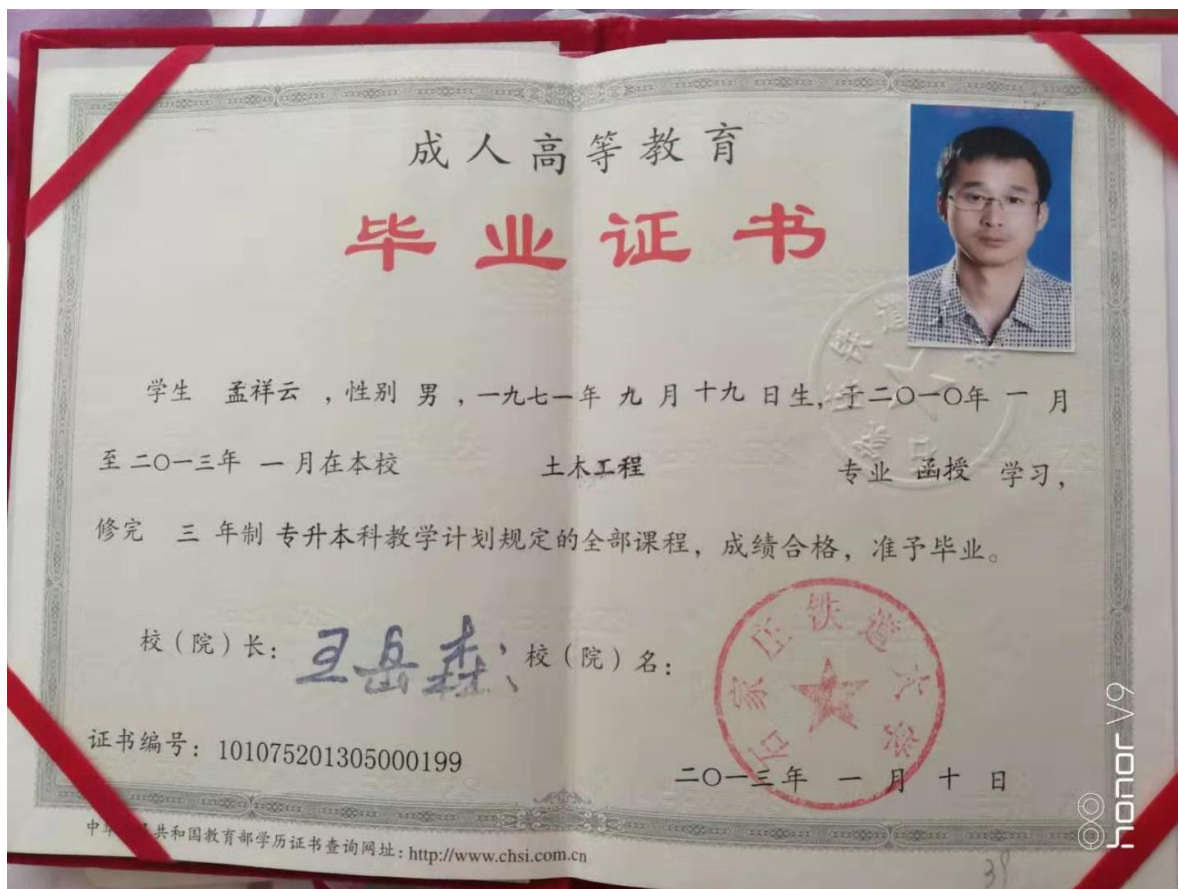 成人高等教育
毕业证书
学生 孟祥云 ，性别 男 ，一九七一年 九 月 十九 日生，于二〇一〇年 一 月
至二〇一三年 一 月在本校 土木工程 专业 函授 学习，
修完 三 年制 专升本科教学计划规定的全部课程，成绩合格，准予毕业。
校（院）长： 王岳森 校（院）名：
石家庄铁道大学
证书编号：101075201305000199
二〇一三年 一 月 十 日
中华人民共和国教育部学历证书查询网址：http://www.chsi.com.cn
honor V9